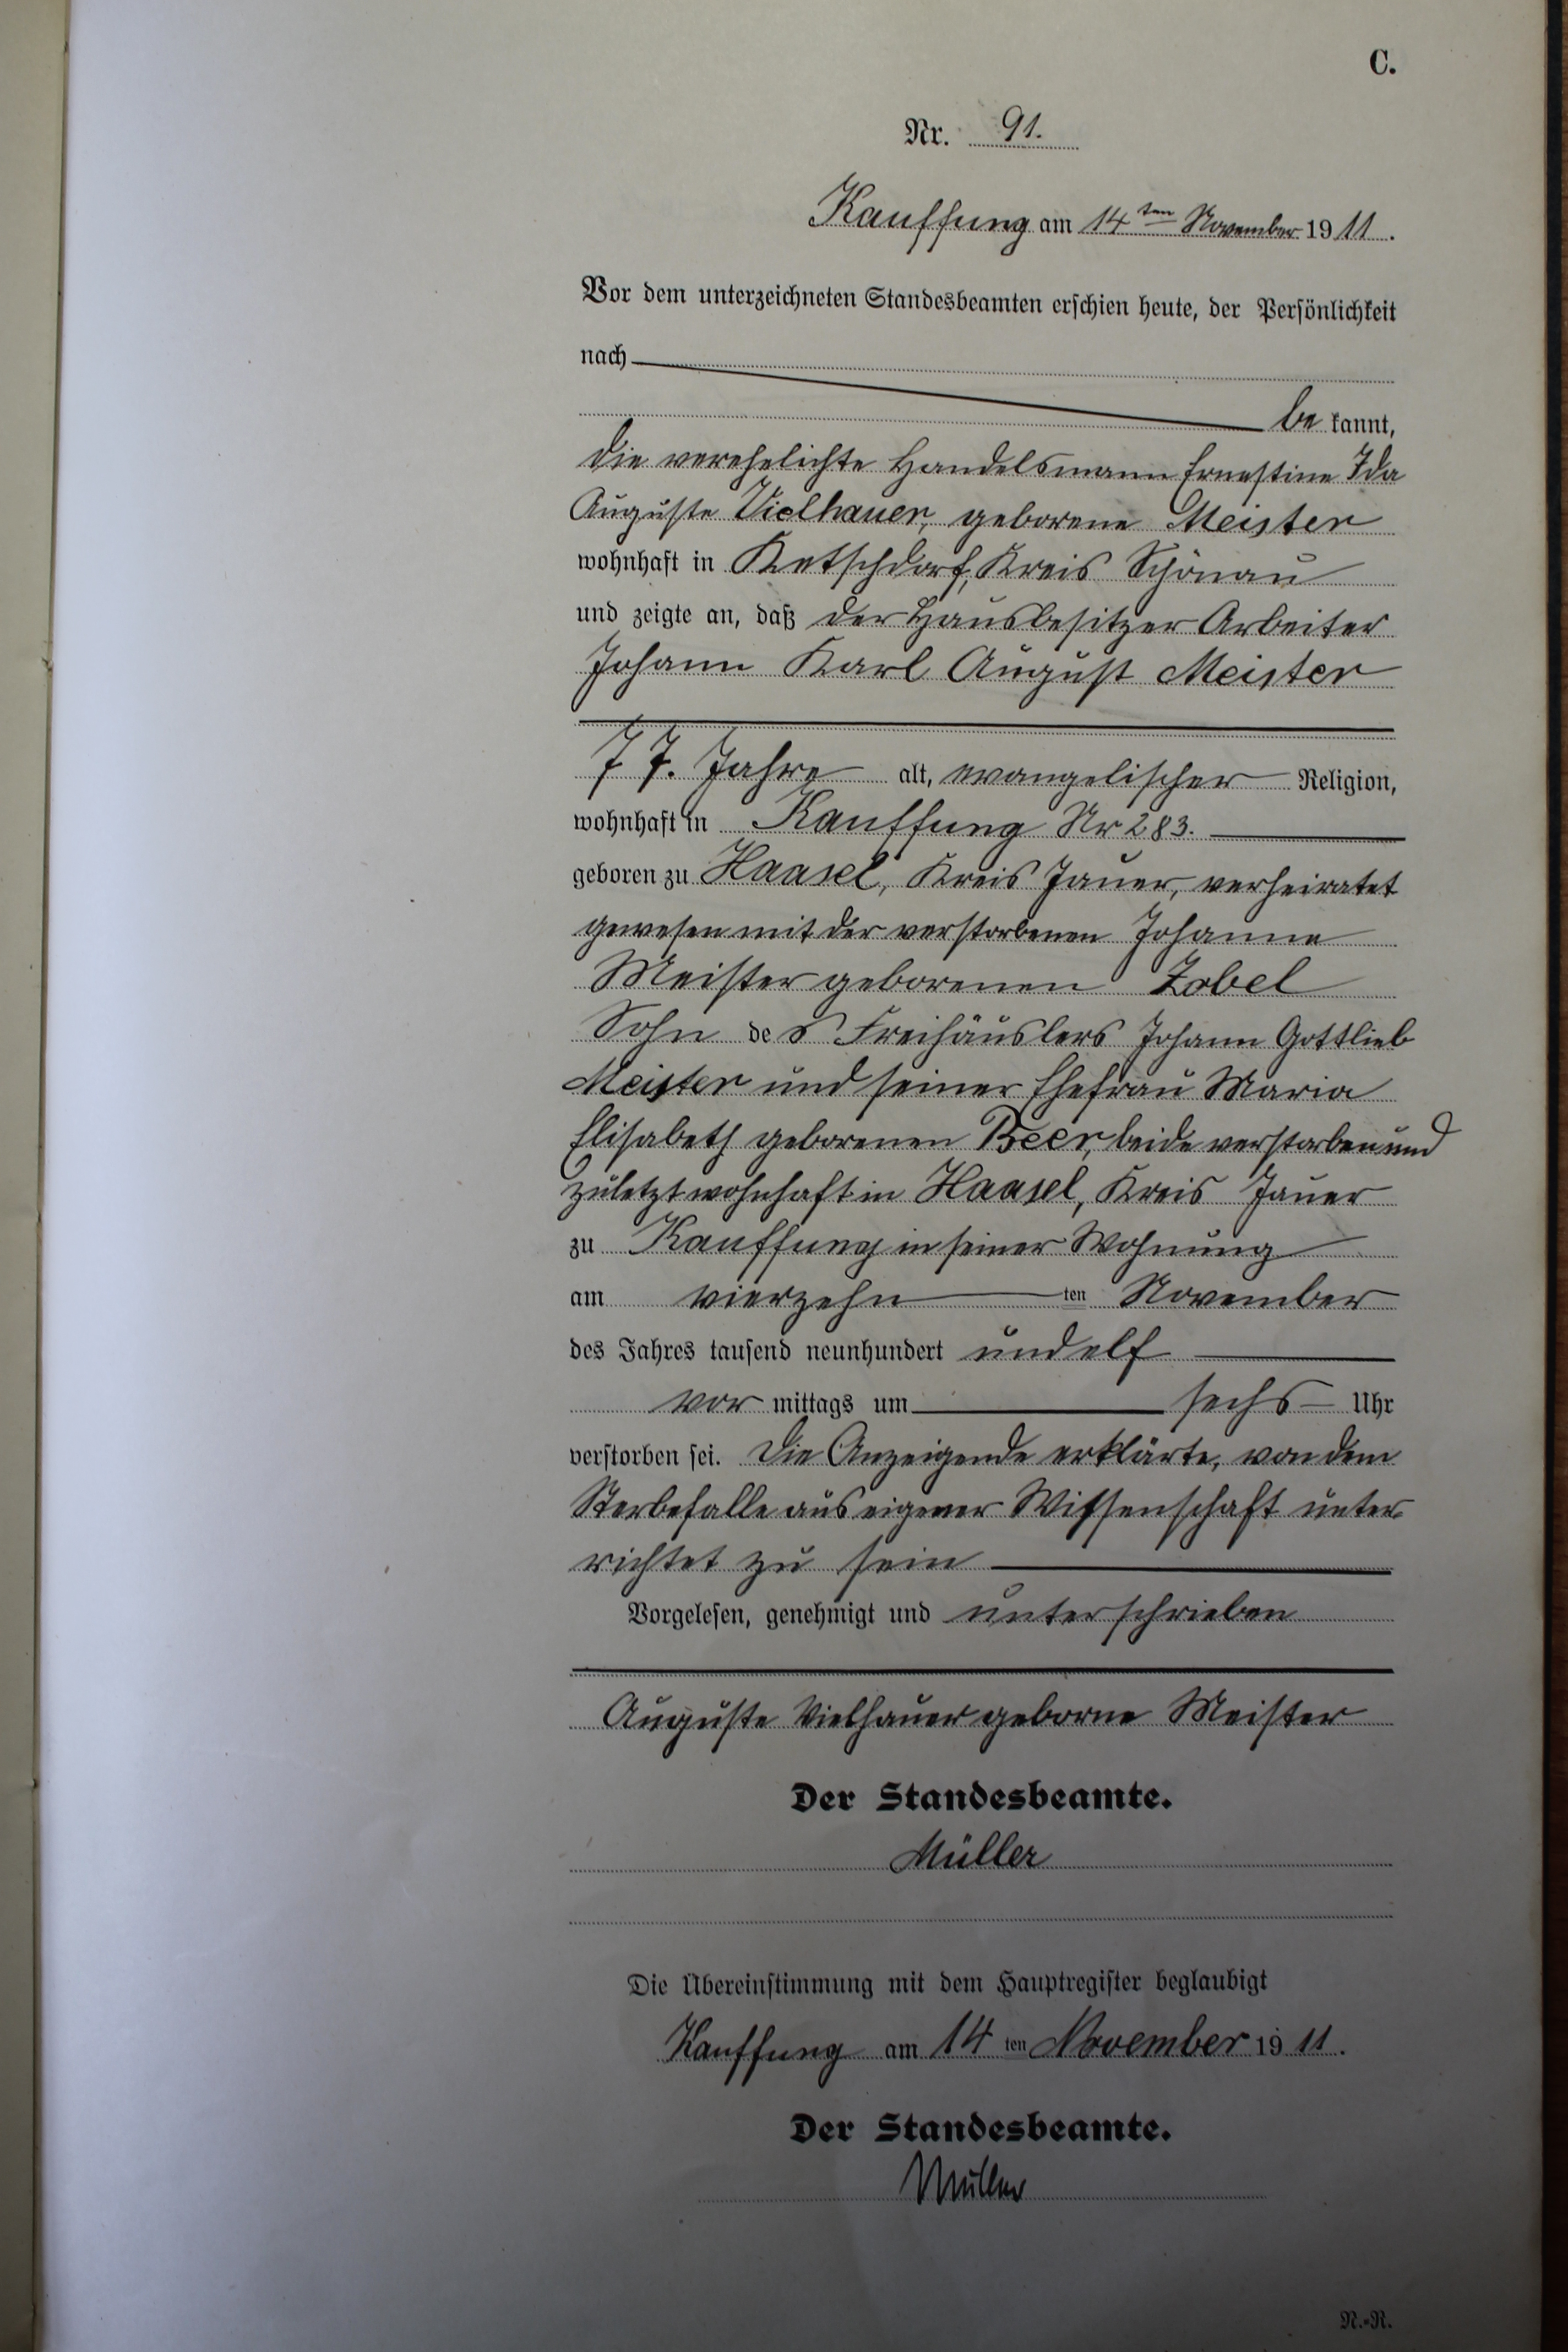 C.
Nr. 91.
Kauffung am 14ten November 1911.
Vor dem unterzeichneten Standesbeamten erschien heute, der Persönlichkeit
nach
be kannt,
die verehelichte Handelsmann Ernestine Ida
Auguste Vielhauer, geborene Meister
wohnhaft in Ketschdorf, Kreis Schönau
und zeigte an, daß der Hausbesitzer Arbeiter
Johann Karl August Meister
77. Jahre alt, evangelischer Religion,
wohnhaft in Kauffung Nr 283.
geboren zu Haasel, Kreis Jauer, verheiratet
gewesen mit der verstorbenen Johanne
Meister geborenen Zobel
Sohn des Freihäuslers Johann Gottlieb
Meister und seiner Ehefrau Maria
Elisabeth geborenen Beer, beide verstorben und
zuletzt wohnhaft in Haasel, Kreis Jauer
zu Kauffung in seiner Wohnung
am vierzehn ten November
des Jahres tausend neunhundert und elf
vor mittags um sechs Uhr
verstorben sei. Die Anzeigende erklärte, von dem
Sterbefalle aus eigener Wissenschaft unter-
richtet zu sein
Vorgelesen, genehmigt und unterschrieben
Auguste Vielhauer geborne Meister
Der Standesbeamte.
Müller
Die Übereinstimmung mit dem Hauptregister beglaubigt
Kauffung am 14 ten November 1911.
Der Standesbeamte.
Müller
N.-R.